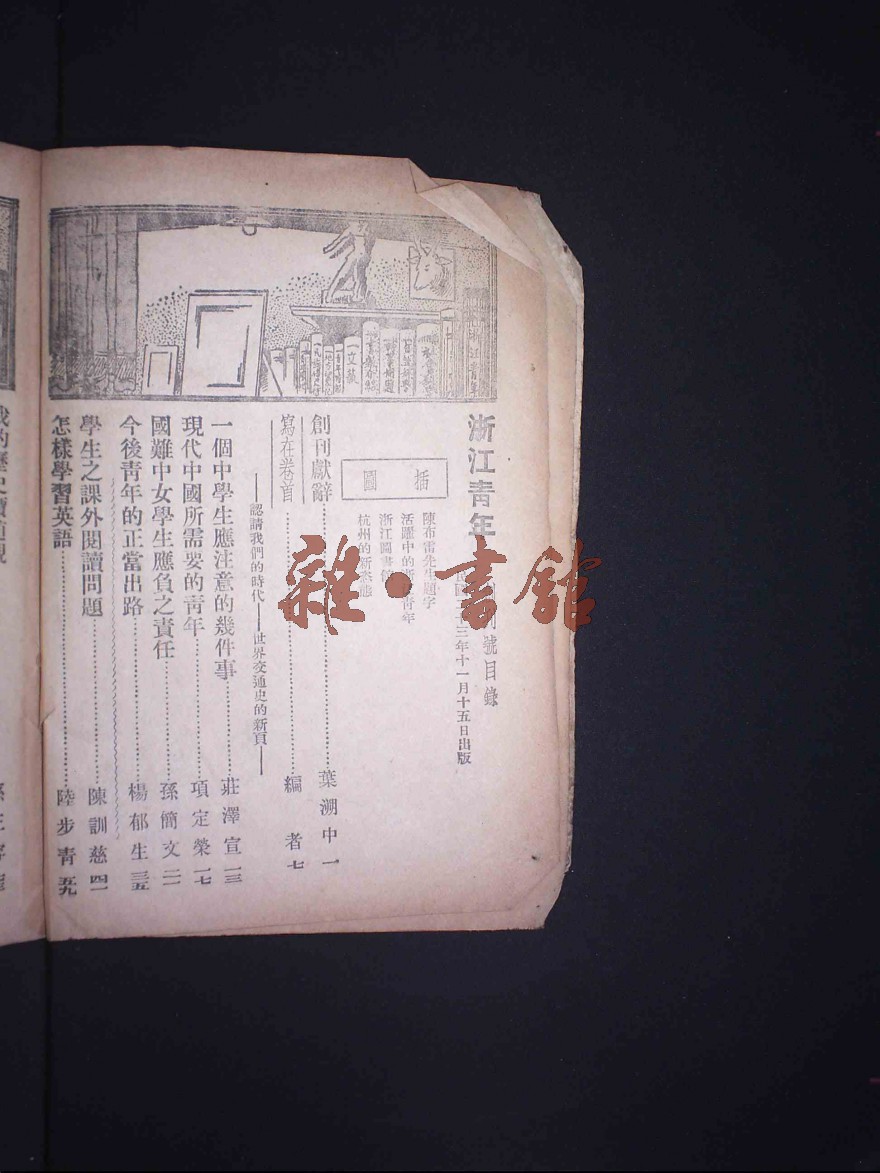 浙江青年
刊號目錄
三年十一月十五日出版
插圖
陳布雷先生題字
活躍中的浙江青年
浙江圖書館
杭州的新姿態
創刊獻辭…………葉溯中 一
寫在卷首…………編者 七
——認請我們的時代——世界交通史的新頁——
一個中學生應注意的幾件事…………莊澤宣 一三
現代中國所需要的青年…………項定榮 一七
國難中女學生應負之責任…………孫簡文 二一
今後青年的正當出路…………楊郁生 三五
學生之課外閱讀問題…………陳訓慈 四一
怎樣學習英語…………陸步青 五九
我的歷史讀
雜·書館